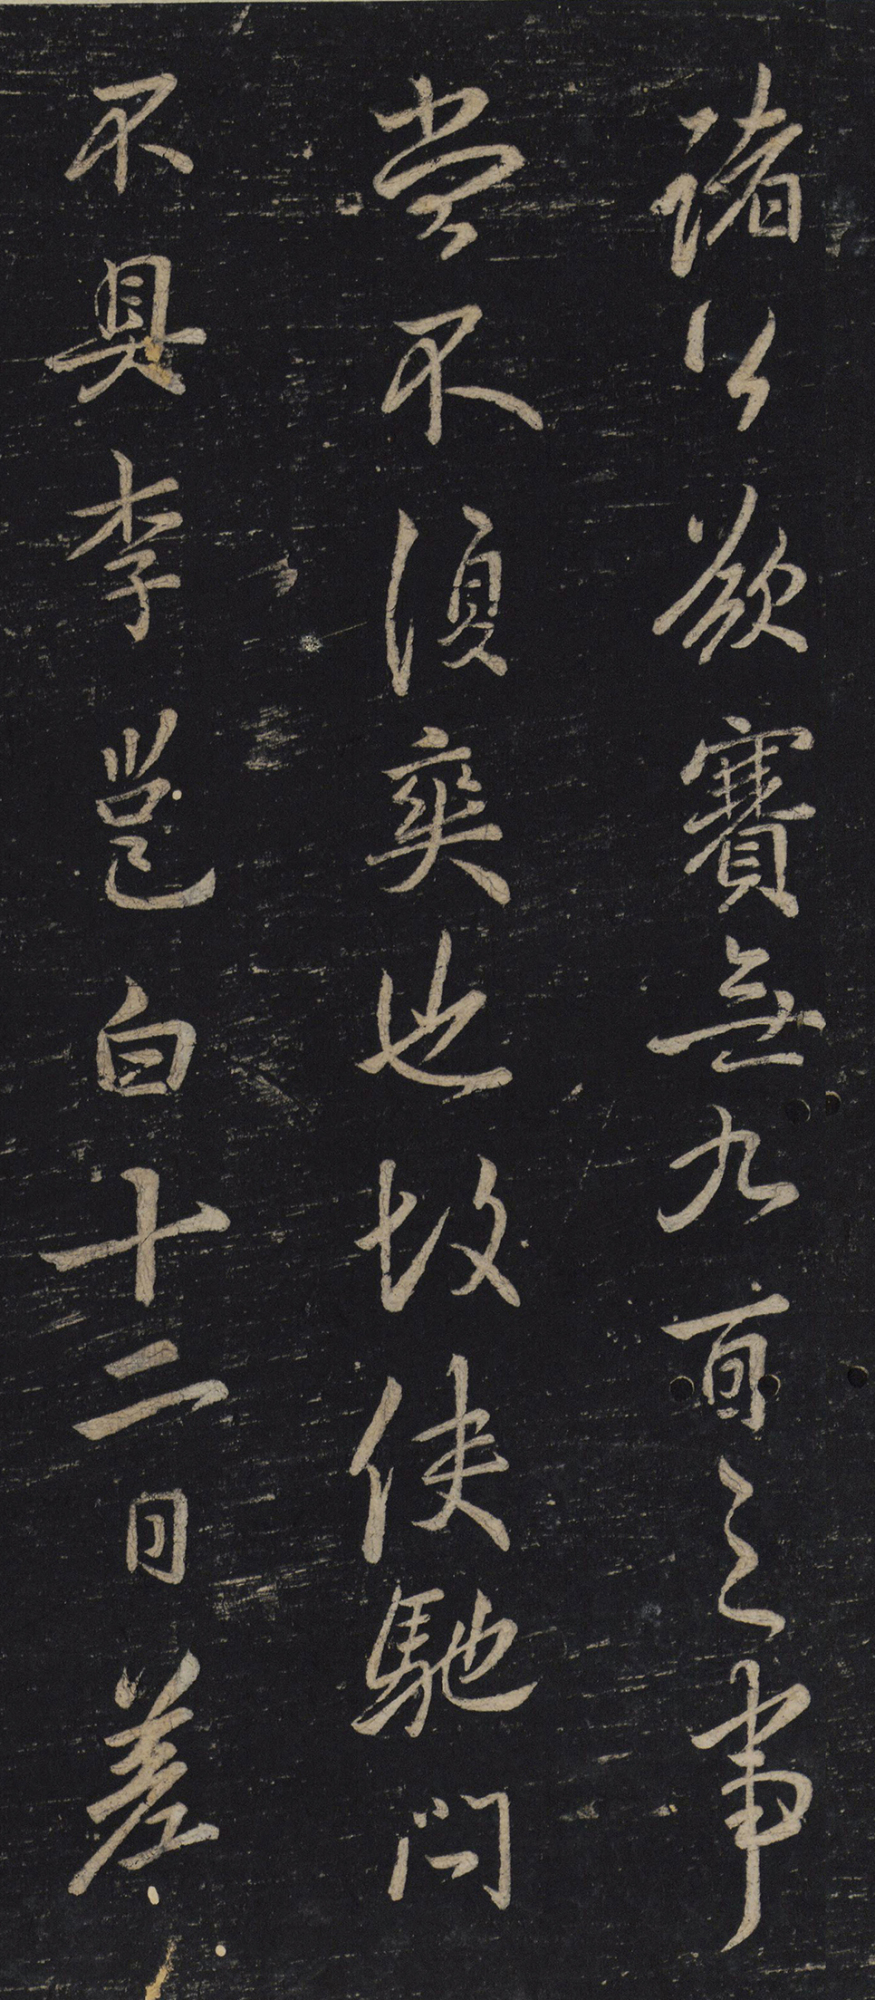 諸公欲賽無九百之事
当不須爽也故使馳問
不具李邕白十二日差